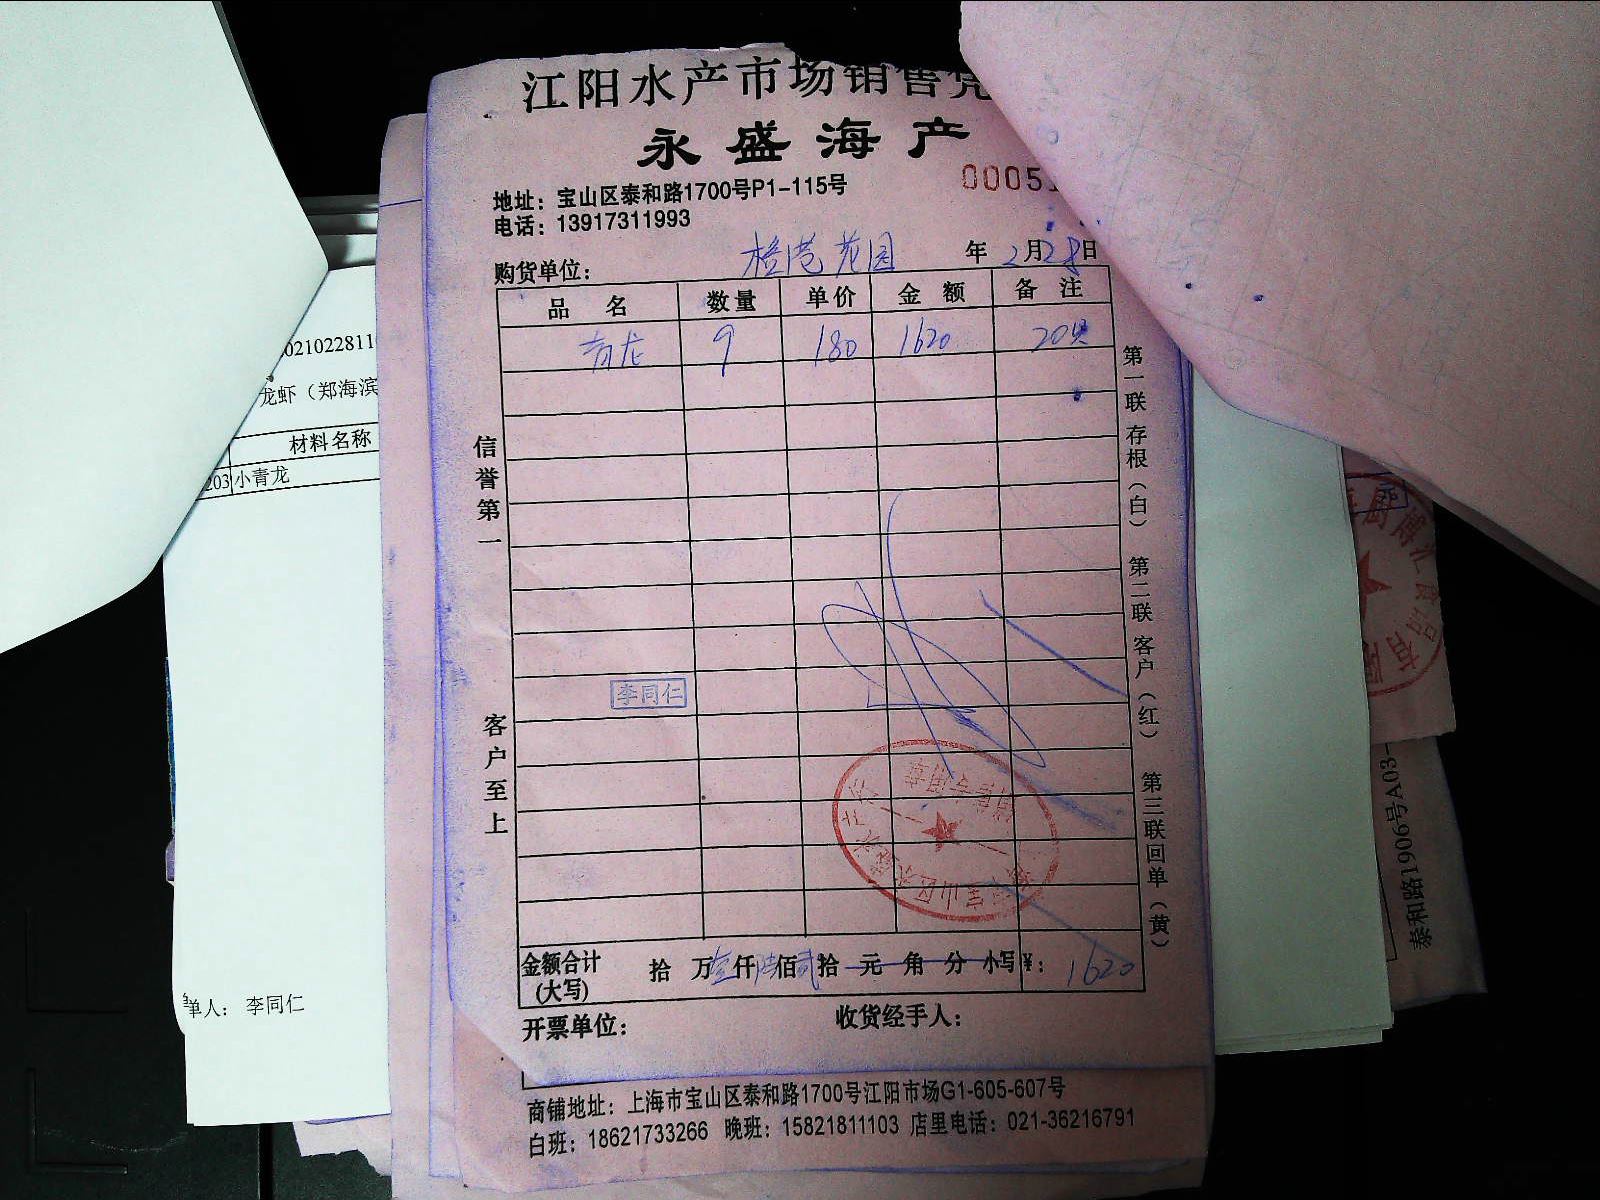 江阳水产市场销售凭
永盛海产
地址：宝山区泰和路1700号P1-115号
00051
电话：13917311993
购货单位： 橙港花园 年 2月28日
品 名 数量 单价 金 额 备 注
青龙 9 180 1620 20只
信誉第一
客户至上
第一联存根（白） 第二联客户（红） 第三联回单（黄）
李同仁
金额合计(大写) 拾 万壹仟陆佰贰拾 元 角 分 小写¥： 1620
开票单位： 收货经手人：
商铺地址：上海市宝山区泰和路1700号江阳市场G1-605-607号
白班：18621733266 晚班：15821811103 店里电话：021-36216791
02102281
龙虾（郑海滨
材料名称
203 小青龙
单人： 李同仁
泰和路1906号A03-